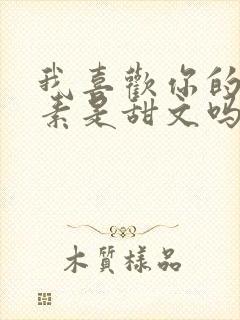 我喜歡你的
素是甜文吗
木質樣品